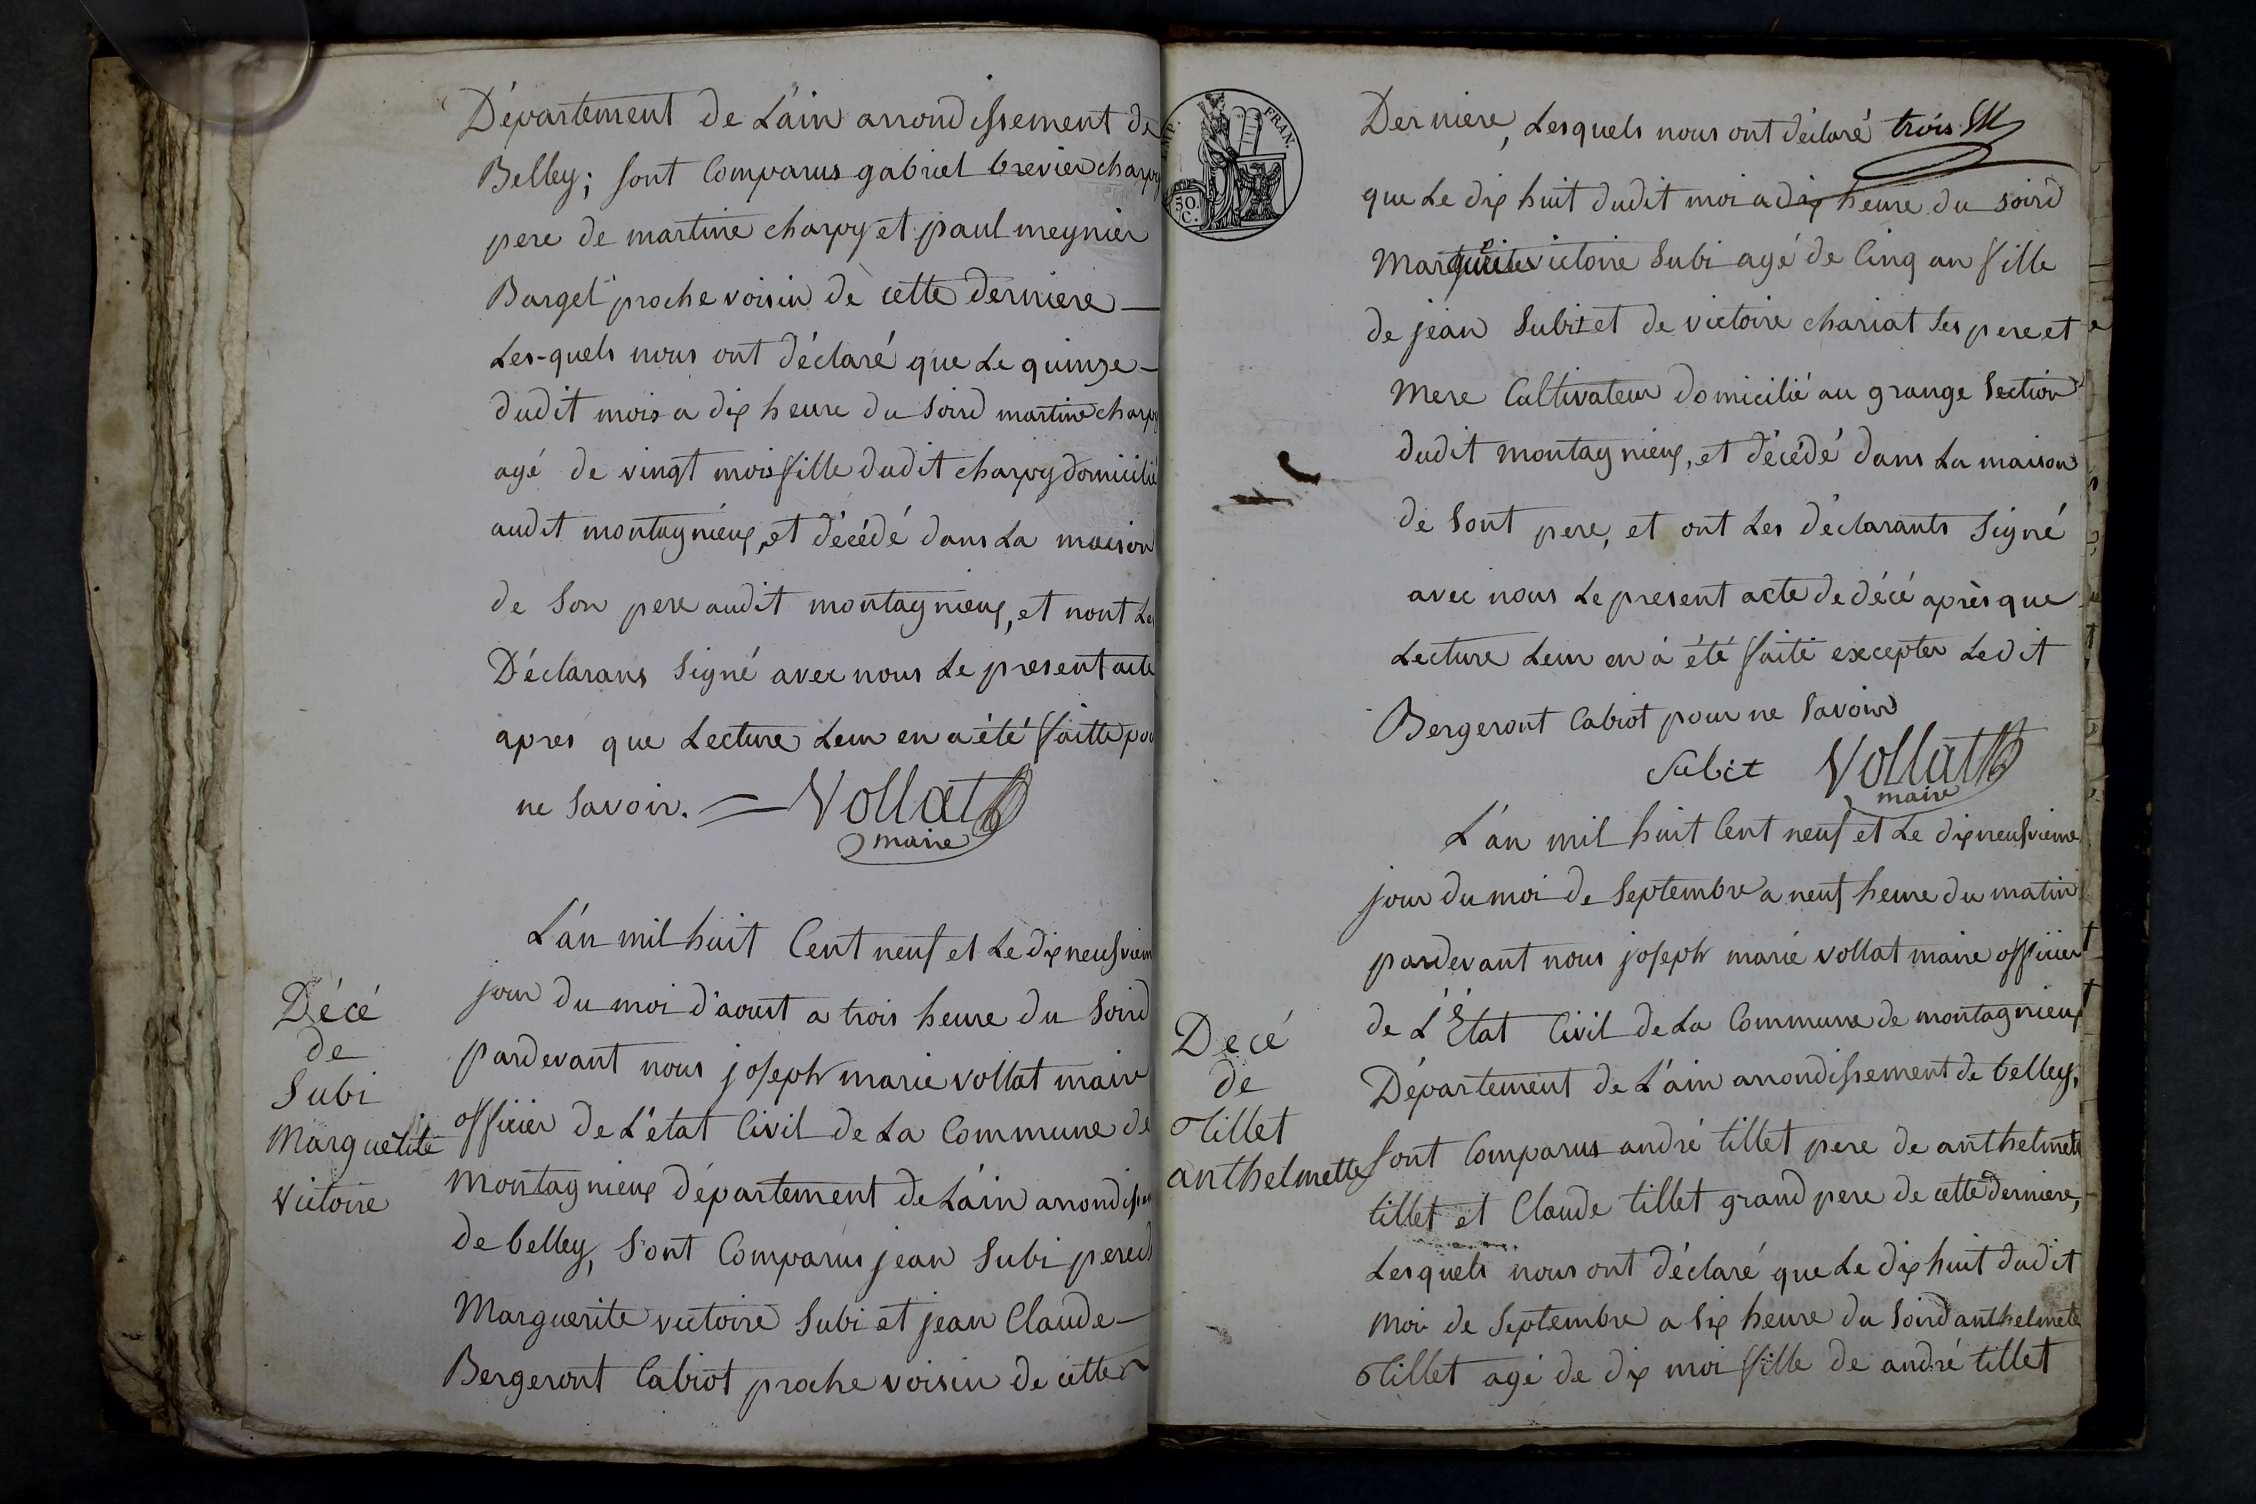 Département de L'ain arrondissement de
Belley; sont Comparus gabriel brevier charpy
pere de martine charpy et paul meynier
Barget proche voisin de cette derniere
Les-quels nous ont déclaré que Le quinze
dudit mois a dix heure du soird martine charpy
agé de vingt mois fille dudit charpy domicilié
audit montagnieux, et décédé dans La maison
de son pere audit montagnieux, et nont Les
Déclarans signé avec nous Le present acte
apres que Lecture Leur en a été faitte pour
ne savoir. Vollat
maire
L'án mil huit Cent neuf et Le dix neufviem
jour du moi d'aoust a trois heure du soird
Décé
de
Subi
Marguerite
Victoire
pardevant nous joseph marie vollat maire
officier de L'état Civil de La Commune de
montagnieux département de L'áin arrondissem
de belley, sont Comparus jean Subi pere de
Marguerite victoire Subi et jean Claude
Bergeront Cabiot proche voisin de cette
IMP. FRAN.
50.
C.
Derniere, Lesquels nous ont déclaré trois
que Le dix huit dudit moi a dix heure du soird
Marguerite victoire Subi agé de Cinq an fille
de jean Subit et de victoire chariat ses pere et
mere Cultivateur domicilié au grange Section
dudit montagnieux, et décédé dans La maison
de sont pere, et ont Les déclarants signé
avec nous Le present acte de décé après que
Lecture Leur en á été faite excepter Ledit
Bergeront Cabiot pour ne savoir
Subit Vollat
maire
L'án mil huit Cent neuf et Le dix neufvieme
jour du moi de Septembre a neuf heure du matin
pardevant nous joseph marie vollat maire officier
de L'État Civil de La Commune de montagnieux
Decé
de
tillet
anthelmette
Département de L'ain arrondissement de belley,
sont Comparus andré tillet pere de anthelmette
tillet et Claude tillet grand pere de cette derniere,
Lesquels nous ont déclaré que Le dix huit dudit
moi de Septembre a six heure du soird anthelmete
tillet agé de dix moi fille de andré tillet